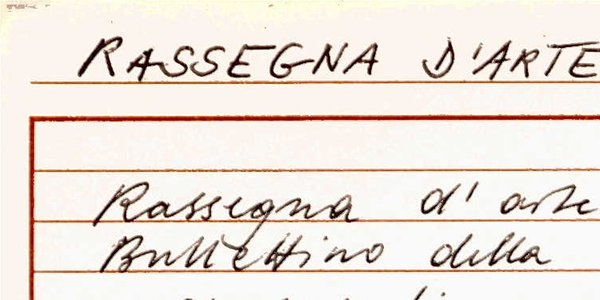 RASSEGNA D'ARTE
Rassegna d'arte
Bullettino della